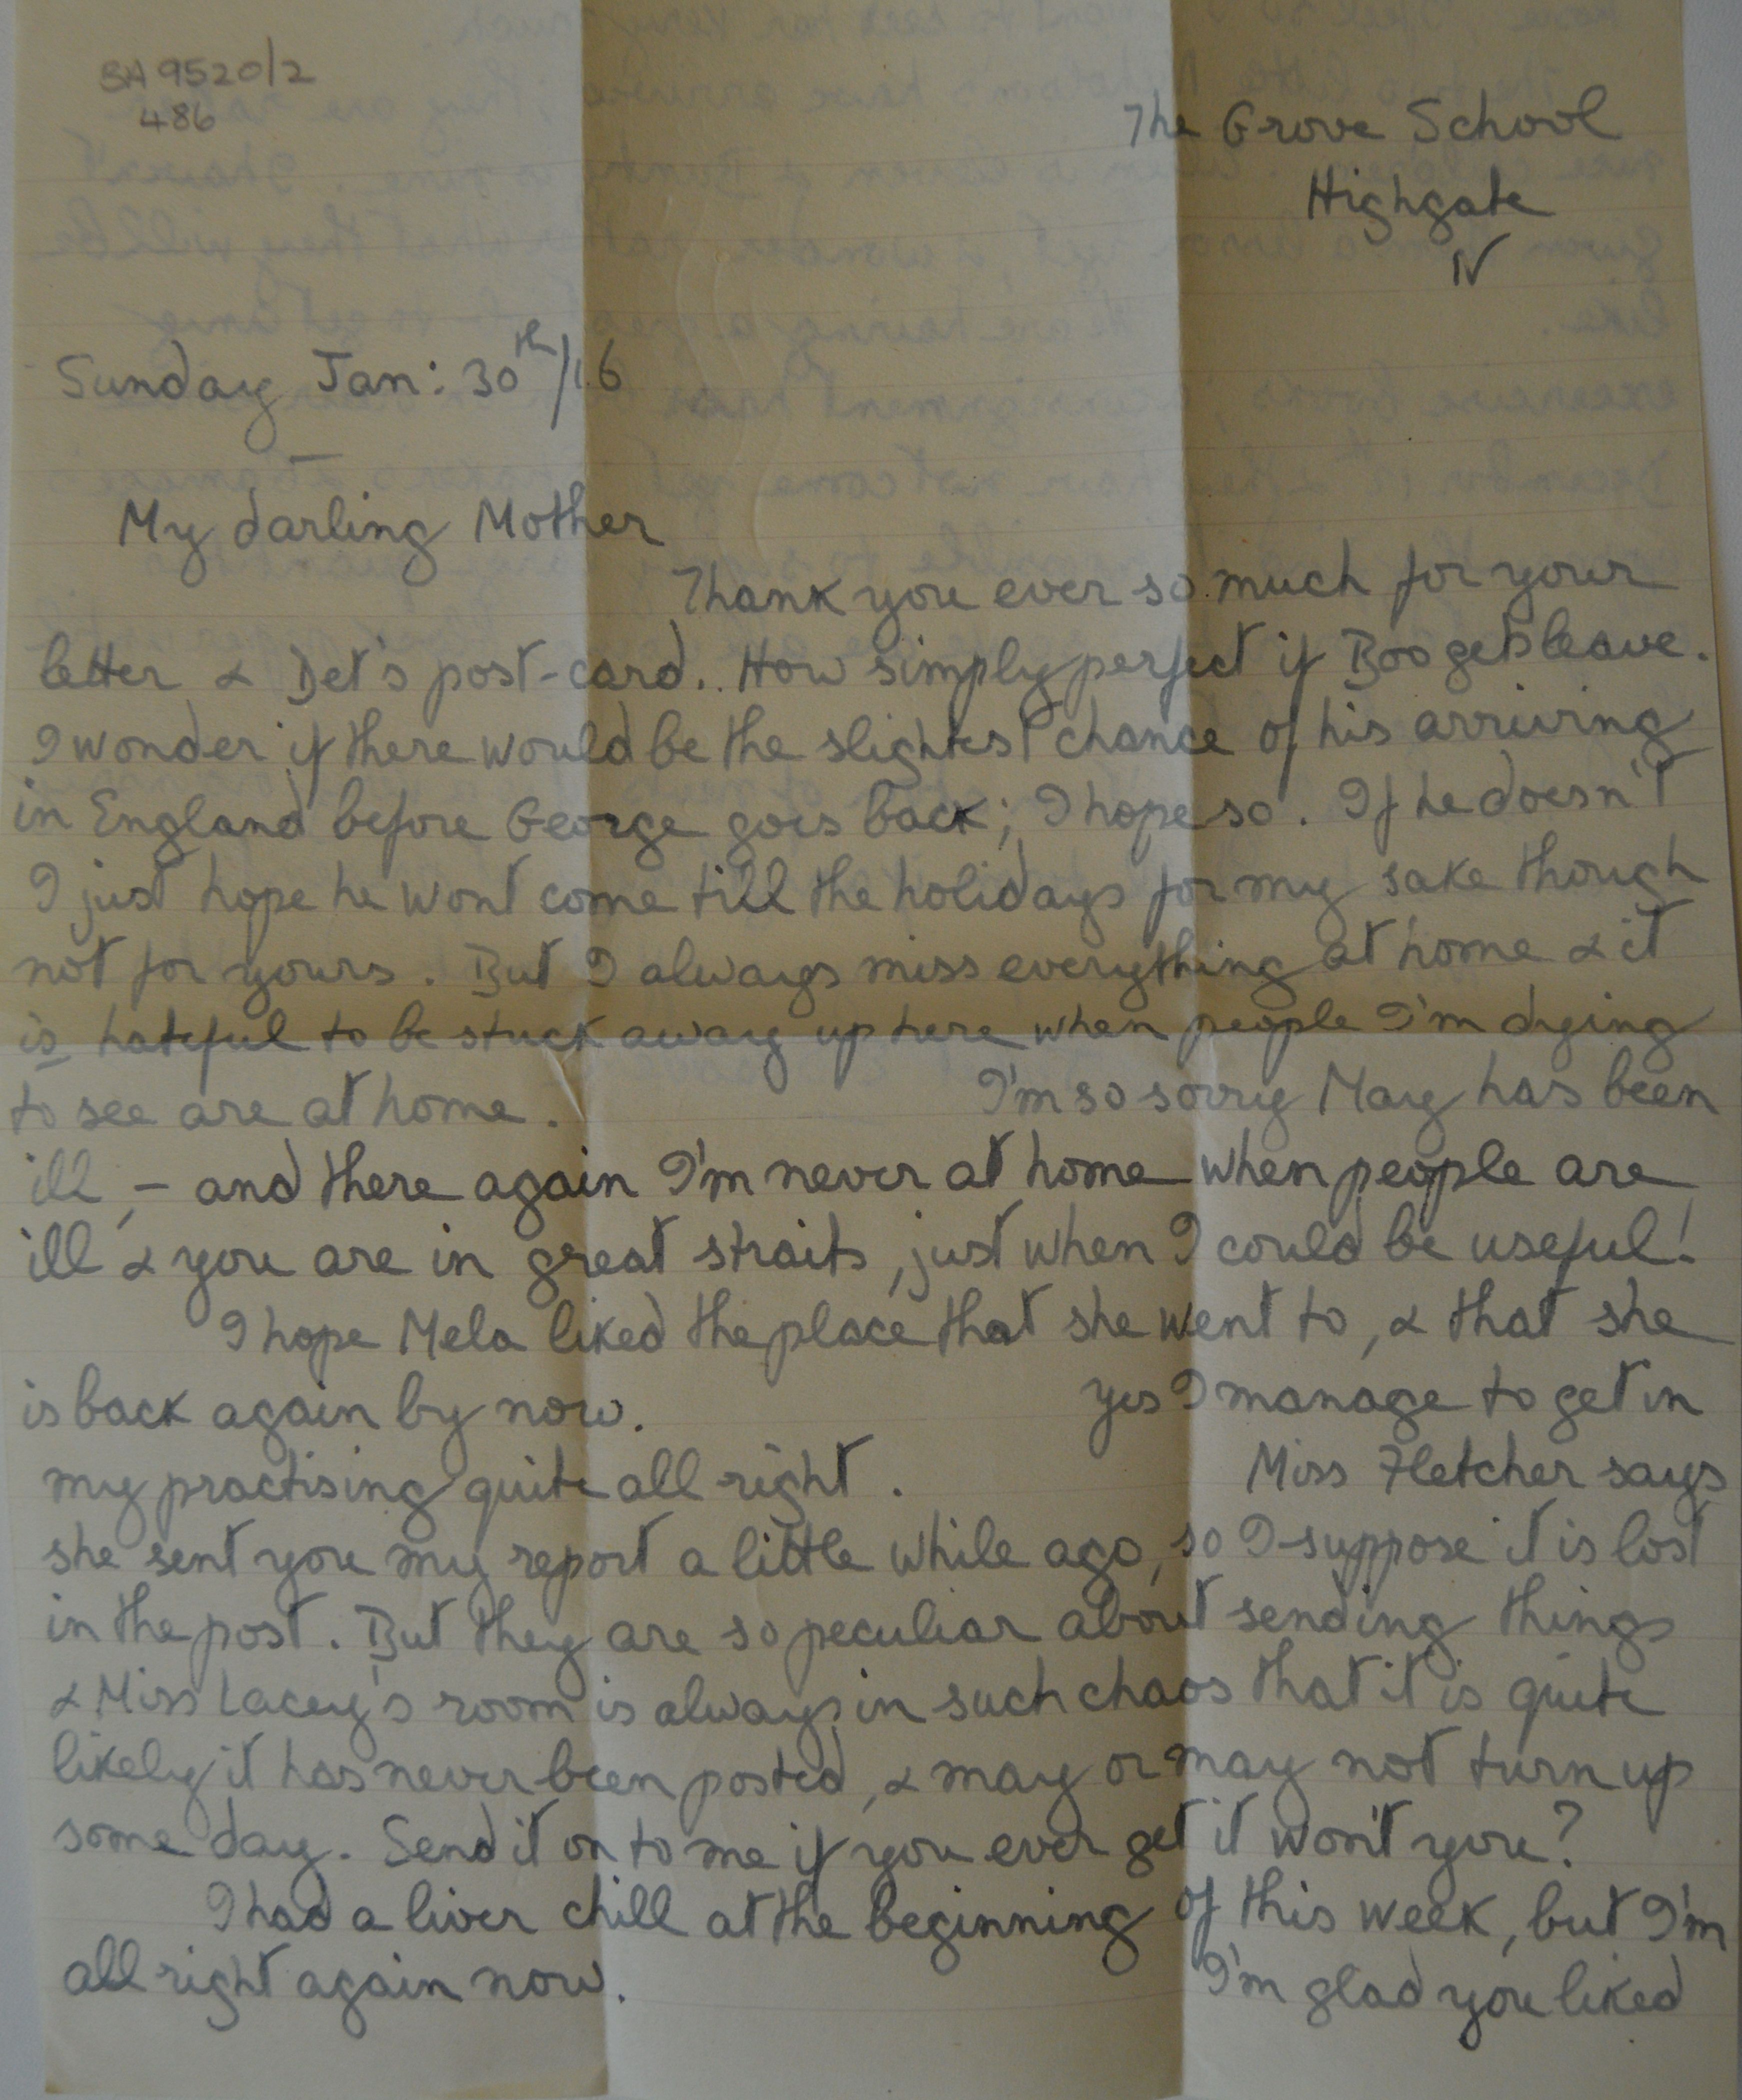 BA 9520/2
486
The Grove School
Highgate
N
Sunday Jan: 30th/16
My darling Mother
Thank you ever so much for your
letter & Det's post-card. How simply perfect if Boo gets leave.
I wonder if there would be the slightest chance of his arriving
in England before George goes back; I hope so. If he doesn't
I just hope he wont come till the holidays for my sake though
not for yours. But I always miss everything at home & it
is hateful to be stuck away up here when people I'm dying
to see are at home. I'm so sorry May has been
ill, – and there again I'm never at home when people are
ill & you are in great straits, just when I could be useful!
I hope Mela liked the place that she went to, & that she
is back again by now. Yes I manage to get in
my practising quite all right. Miss Fletcher says
she sent you my report a little while ago, so I suppose it is lost
in the post. But they are so peculiar about sending things
& Miss Lacey's room is always in such chaos that it is quite
likely it has never been posted, & may or may not turn up
some day. Send it on to me if you ever get it won't you?
I had a liver chill at the beginning of this week, but I'm
all right again now. I'm glad you liked